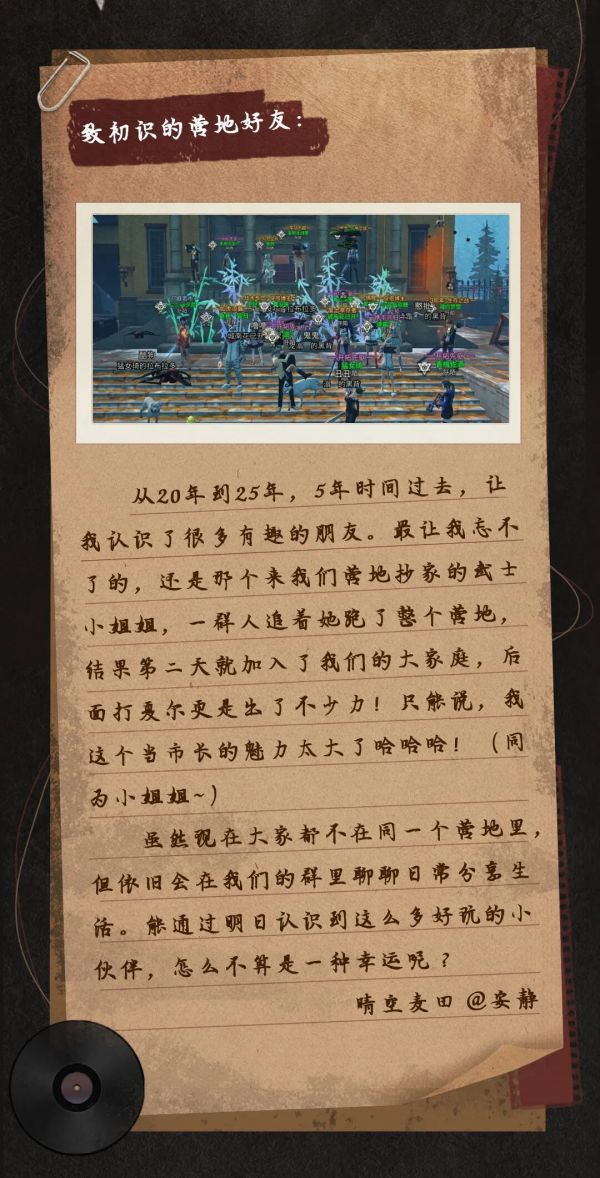 致初识的营地好友：
猛女琦的拉布拉多
从20年到25年，5年时间过去，让
我认识了很多有趣的朋友。最让我忘不
了的，还是那个来我们营地抄家的武士
小姐姐，一群人追着她跑了整个营地，
结果第二天就加入了我们的大家庭，后
面打夏尔更是出了不少力！只能说，我
这个当市长的魅力太大了哈哈哈！（同
为小姐姐~）
虽然现在大家都不在同一个营地里，
但依旧会在我们的群里聊聊日常分享生
活。能通过明日认识到这么多好玩的小
伙伴，怎么不算是一种幸运呢？
晴空麦田 @安静